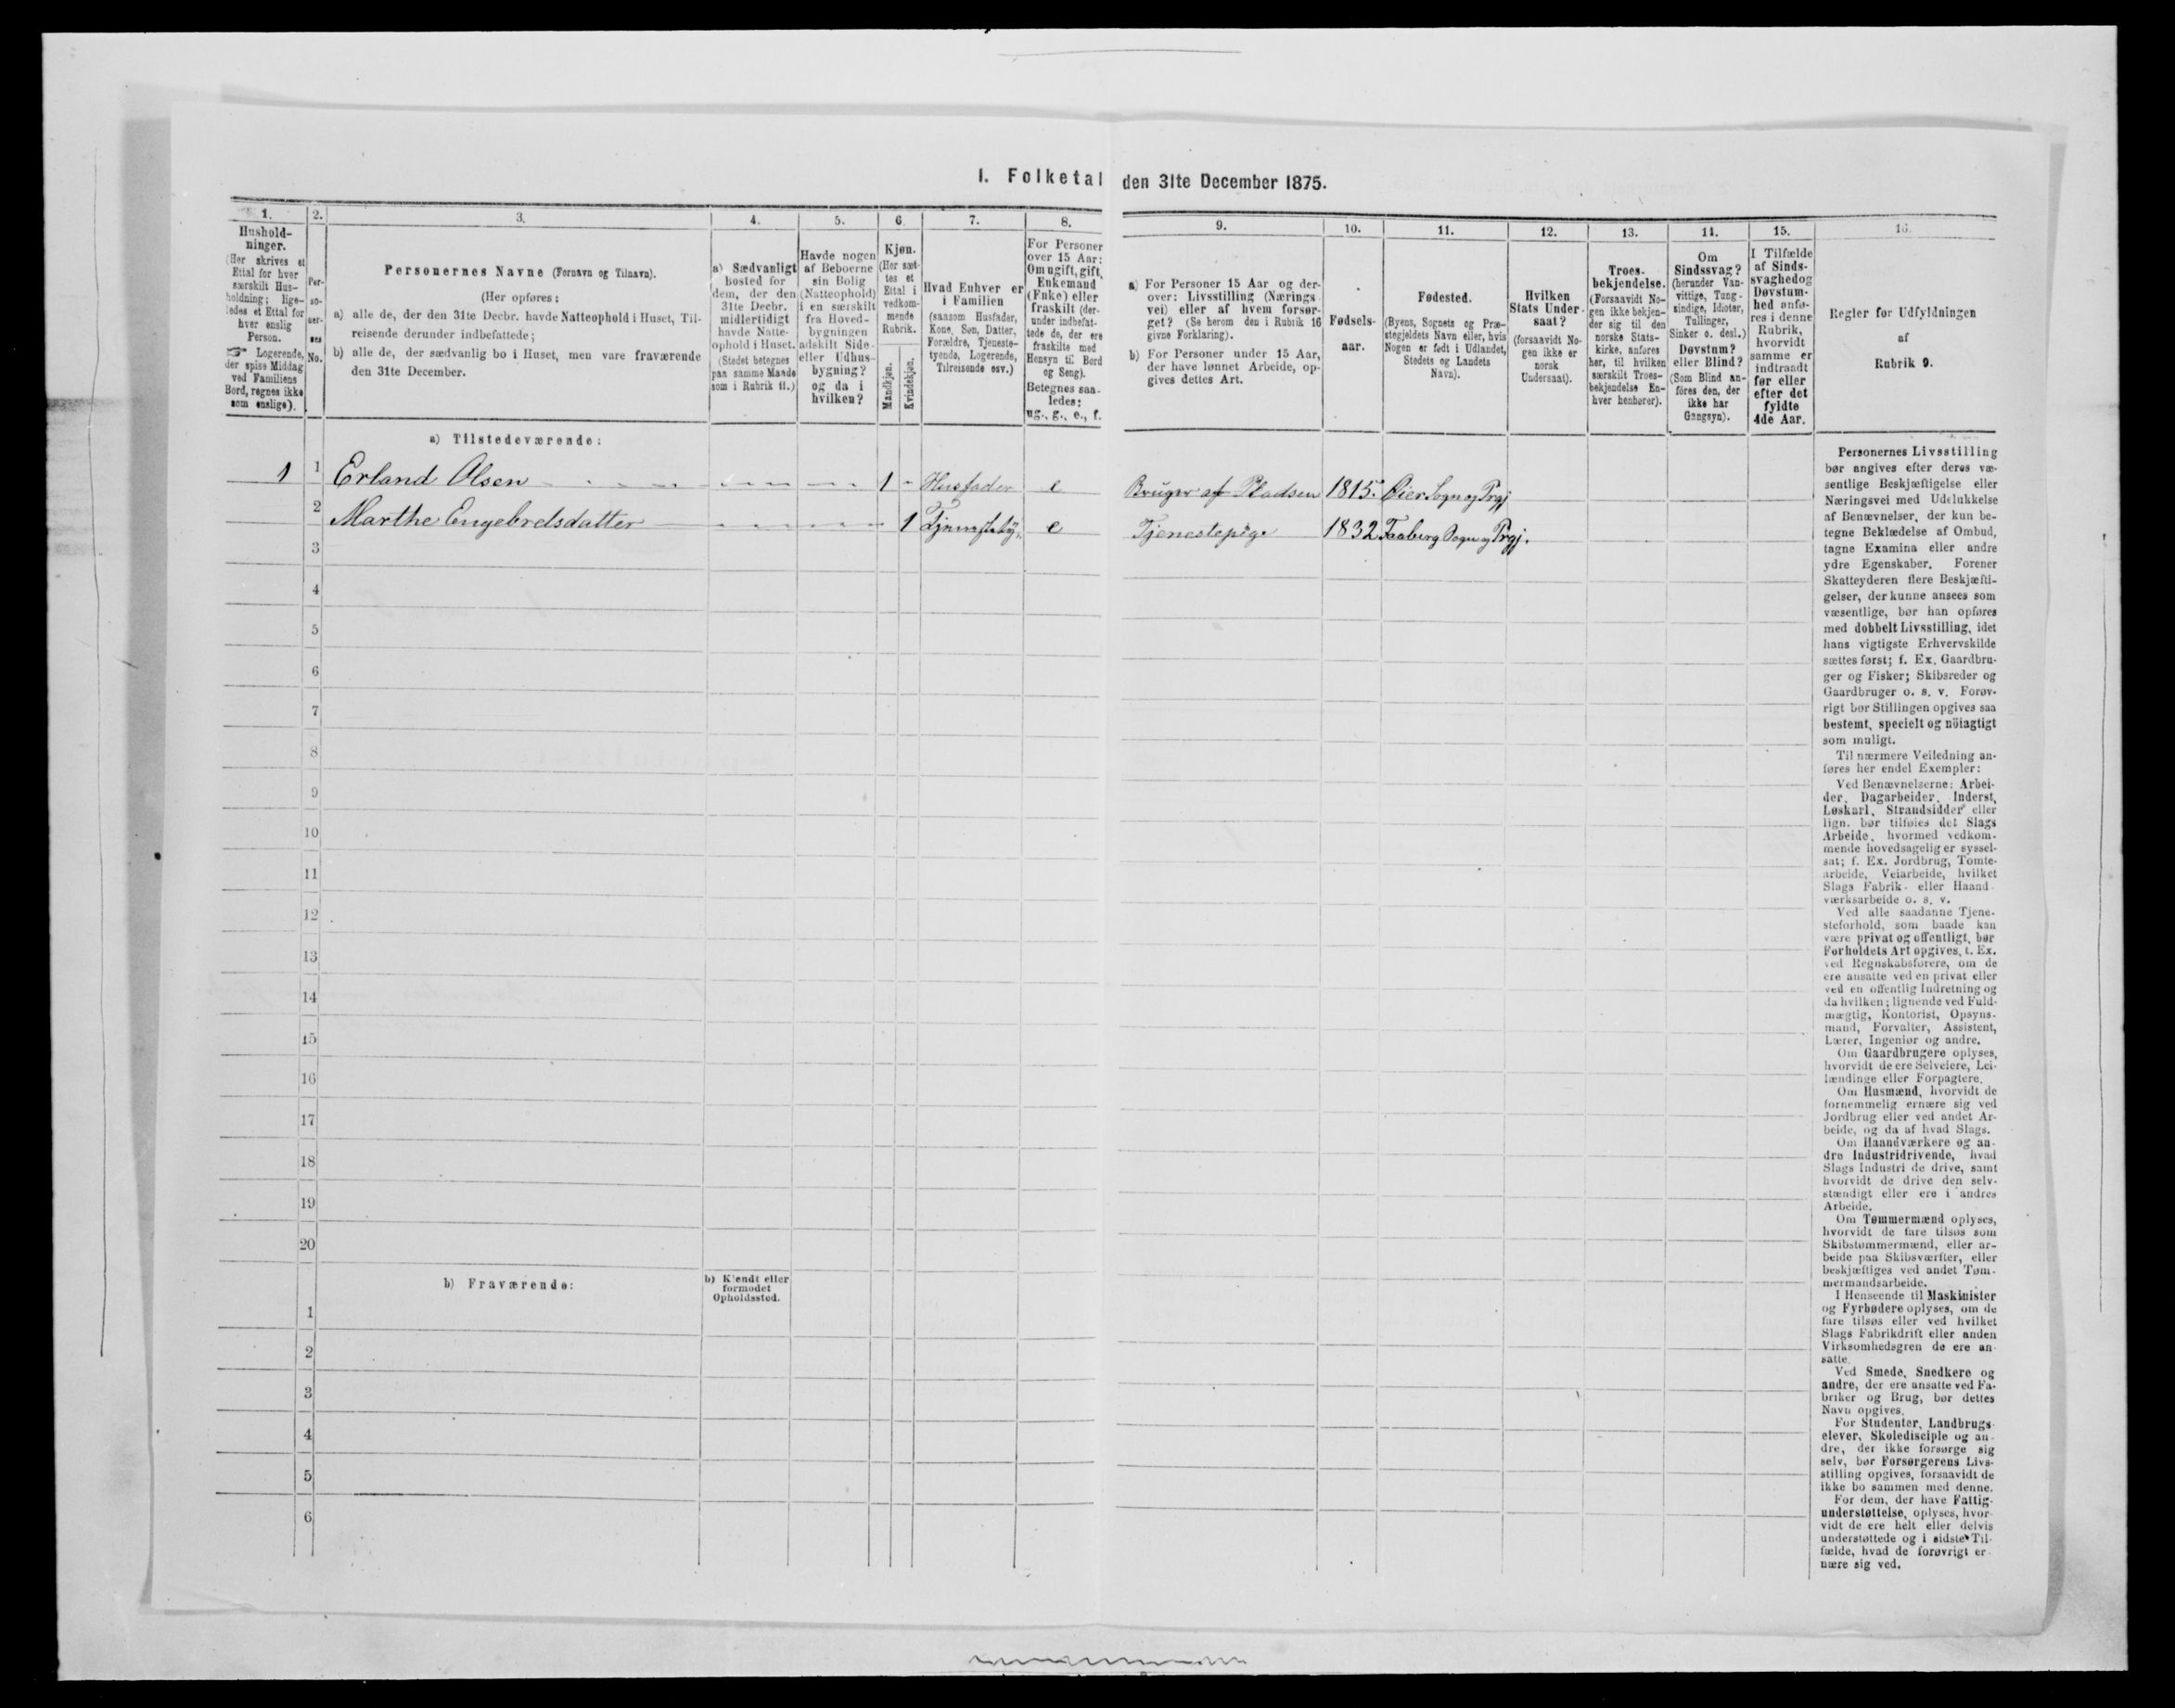 I. Folketal den 31te December 1875.
1. 2. 3. 4. 5. 6. 7. 8. 9. 10. 11. 12. 13. 14. 15. 16.
Hushold-
ninger.
(Her skrives et
Ettal for hver
særskilt Hus-
holdning; lige-
ledes et Ettal for
hver enslig
Person.
☞ Logerende,
der spise Middag
ved Familiens
Bord, regnes ikke
som enslige).
Per-
so-
ner-
nes
No.
Personernes Navne (Fornavn og Tilnavn).
(Her opføres:
a) alle de, der den 31te Decbr. havde Natteophold i Huset, Til-
reisende derunder indbefattede;
b) alle de, der sædvanlig bo i Huset, men vare fraværende
den 31te December.
a) Sædvanligt
bosted for
dem, der den
31te Decbr.
midlertidigt
havde Natte-
ophold i Huset.
(Stedet betegnes
paa samme Maade
som i Rubrik 11.)
Havde nogen
af Beboerne
sin Bolig
(Natteophold)
i en særskilt
fra Hoved-
bygningen
adskilt Side-
eller Udhus-
bygning?
og da i
hvilken?
Kjøn.
(Her sæt-
tes et
Ettal i
vedkom-
mende
Rubrik.
Mandkjøn.
Kvindekjøn.
Hvad Enhver er
i Familien
(saasom Husfader,
Kone, Søn, Datter,
Forældre, Tjeneste-
tyende, Logerende,
Tilreisende osv.)
For Personer
over 15 Aar:
Om ugift, gift,
Enkemand
(Enke) eller
fraskilt (der-
under indbefat-
tede de, der ere
fraskilte med
Hensyn til Bord
og Seng).
Betegnes saa-
ledes:
ug., g., e., f.
a) For Personer 15 Aar og der-
over: Livsstilling (Nærings-
vei) eller af hvem forsør-
get? (Se herom den i Rubrik 16
givne Forklaring).
b) For Personer under 15 Aar,
der have lønnet Arbeide, op-
gives dettes Art.
Fødsels-
aar.
Fødested.
(Byens, Sognets og Præ-
stegjeldets Navn eller, hvis
Nogen er født i Udlandet,
Stedets og Landets
Navn).
Hvilken
Stats Under-
saat?
(forsaavidt No-
gen ikke er
norsk
Undersaat).
Troes-
bekjendelse.
(Forsaavidt No-
gen ikke bekjen-
der sig til den
norske Stats-
kirke, anføres
her, til hvilken
særskilt Troes-
bekjendelse En-
hver henhører).
Om
Sindssvag?
(herunder Van-
vittige, Tung-
sindige, Idioter,
Tullinger,
Sinker o. desl.)
Døvstum?
eller Blind?
(Som Blind an-
føres den, der
ikke har
Gangsyn).
I Tilfælde
af Sinds-
svaghed og
Døvstum-
hed anfø-
res i denne
Rubrik,
hvorvidt
samme er
indtraadt
før eller
efter det
fyldte
4de Aar.
Regler for Udfyldningen
af
Rubrik 9.
a) Tilstedeværende:
1 1 Erland Olsen 1 Husfader e Bruger af Pladsen 1815. Øier Sogn og Prgj
2 Marthe Engebretsdatter 1 e Tjenestepige 1832 Faaberg Sogn og Prgj.
3
4
5
6
7
8
9
10
11
12
13
14
15
16
17
18
19
20
b) Fraværende:
b) Kjendt eller
formodet
Opholdssted.
1
2
3
4
5
6
Personernes Livsstilling
bør angives efter deres væ-
sentlige Beskjæftigelse eller
Næringsvei med Udelukkelse
af Benævnelser, der kun be-
tegne Beklædelse af Ombud,
tagne Examina eller andre
ydre Egenskaber. Forener
Skatteyderen flere Beskjæfti-
gelser, der kunne ansees som
væsentlige, bør han opføres
med dobbelt Livsstilling, idet
hans vigtigste Erhvervskilde
sættes først; f. Ex. Gaardbru-
ger og Fisker; Skibsreder og
Gaardbruger o. s. v. Forøv-
rigt bør Stillingen opgives saa
bestemt, specielt og nöiagtigt
som muligt.
Til nærmere Veiledning an-
føres her endel Exempler:
Ved Benævnelserne: Arbei-
der, Dagarbeider, Inderst,
Løskarl, Strandsidder eller
lign. bør tilføies det Slags
Arbeide, hvormed vedkom-
mende hovedsagelig er syssel-
sat; f. Ex. Jordbrug, Tomte-
arbeide, Veiarbeide, hvilket
Slags Fabrik- eller Haand-
værksarbeide o. s. v.
Ved alle saadanne Tjene-
steforhold, som baade kan
være privat og offentligt, bør
Forholdets Art opgives, t. Ex.
ved Regnskabsførere, om de
ere ansatte ved en privat eller
ved en offentlig Indretning og
da hvilken; lignende ved Fuld-
mægtig, Kontorist, Opsyns-
mand, Forvalter, Assistent,
Lærer, Ingeniør og andre.
Om Gaardbrugere oplyses,
hvorvidt de ere Selveiere, Lei-
lændinge eller Forpagtere.
Om Husmænd, hvorvidt de
fornemmelig ernære sig ved
Jordbrug eller ved andet Ar-
beide, og da af hvad Slags.
Om Haandværkere og an-
dre Industridrivende, hvad
Slags Industri de drive, samt
hvorvidt de drive den selv-
stændigt eller ere i andres
Arbeide.
Om Tømmermænd oplyses,
hvorvidt de fare tilsøs som
Skibstømmermænd, eller ar-
beide paa Skibsværfter, eller
beskjæftiges ved andet Tøm-
mermandsarbeide.
I Henseende til Maskinister
og Fyrbødere oplyses, om de
fare tilsøs eller ved hvilket
Slags Fabrikdrift eller anden
Virksomhedsgren de ere an-
satte.
Ved Smede, Snedkere og
andre, der ere ansatte ved Fa-
briker og Brug, bør dettes
Navn opgives.
For Studenter, Landbrugs-
elever, Skoledisciple og an-
dre, der ikke forsørge sig
selv, bør Forsørgerens Livs-
stilling opgives, forsaavidt de
ikke bo sammen med denne.
For dem, der have Fattig-
understøttelse, oplyses, hvor-
vidt de ere helt eller delvis
understøttede og i sidste Til-
fælde, hvad de forøvrigt er-
nære sig ved.